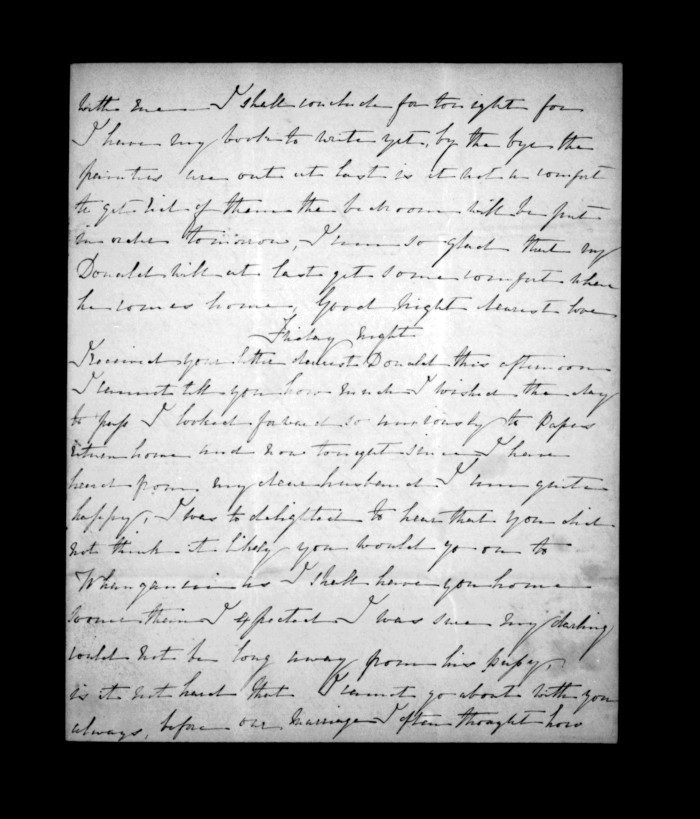 with me I shall conclude for tonight for
I have my book to write yet, by the bye the
painters are out at last is it not a comfort
to get rid of them the bedroom will be put
in order tomorrow, I am so glad that my
Donald will at last get some comfort when
he comes home, Good Night dearest love
Friday night
I received your letter dearest Donald this afternoon
I cannot tell you how much I wished the day
to pass I looked forward so anxiously to Papas
return home and now tonight since I have
heard from my dear husband I am quite
happy, I was to delighted to hear that you did
not think it likely you would go on to
Whanganui as I shall have you home
sooner than I expected I was sure my darling
could not be long away from his
is it not hard that I cannot go about with you
always, before our marriage I often thought how